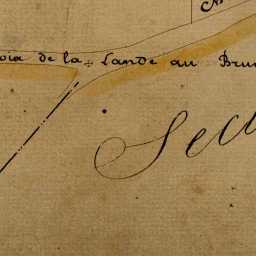 oia de la Lande au Brun
Sect